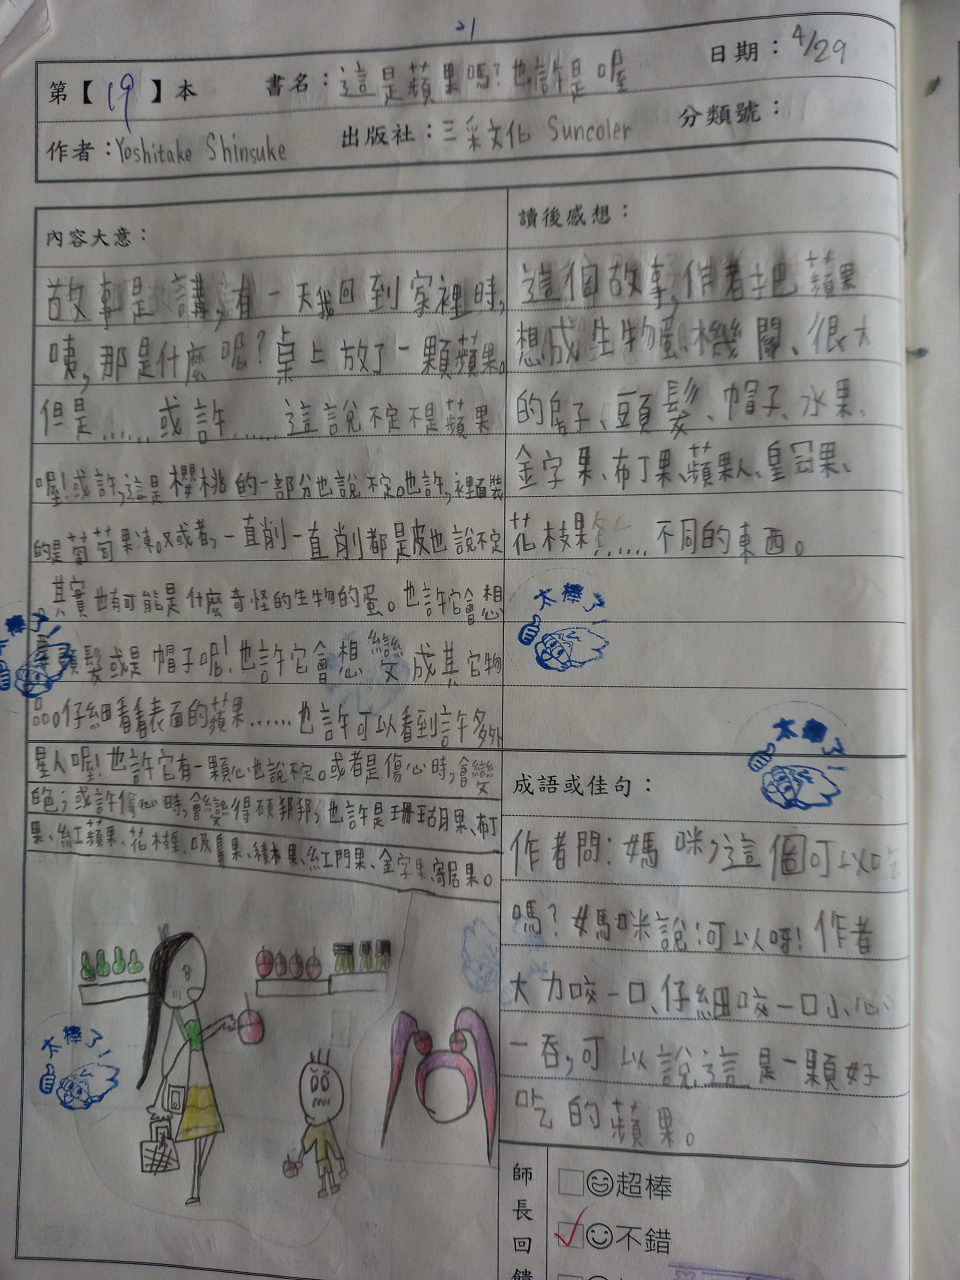 21
第【19】本 書名：這是蘋果嗎？也許是喔 日期：4/29
作者：Yoshitake Shinsuke 出版社：三采文化 Suncoler 分類號：
內容大意：
故事是講，有一天我回到家裡時，
咦，那是什麼呢？桌上放了一顆蘋果。
但是......或許......這說不定不是蘋果
喔！或許，這是櫻桃的一部分也說不定。也許，裡面裝
的是葡萄果凍。又或者，一直削一直削都是皮也說不定
。其實也有可能是什麼奇怪的生物的蛋。也許它會想
頭髮或是帽子呢！也許它會想變成其它物
品。仔細看看表面的蘋果......也許可以看到許多外
星人喔！也許它有一顆心也說不定。或者是傷心時，會變
色；或許傷心時，會變得硬邦邦，也許是珊瑚果、布丁
果、紅蘋果、花枝果、吸鼻果、積木果、紅門果、金字果、寄居果。
讀後感想：
這個故事，作者把蘋果
想成生物蛋、機關、很大
的房子、頭髮、帽子、水果、
金字果、布丁果、蘋果人、皇冠果、
花枝果......不同的東西。
太棒了！
太棒了！
太棒了！
成語或佳句：
作者問：媽咪，這個可以吃
嗎？媽咪說：可以呀！作者
大力咬一口、仔細咬一口小心
一吞，可以說這是一顆好
吃的蘋果。
師長回饋
超棒
不錯